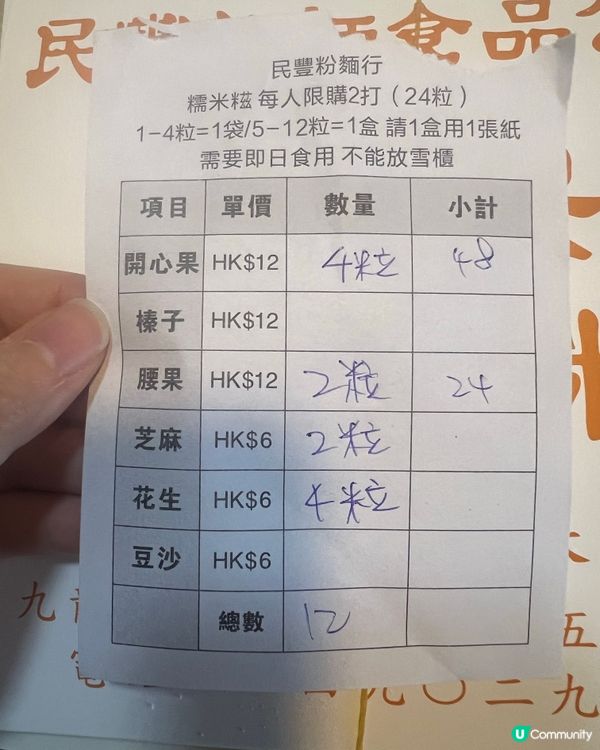 食品
民豐粉麵行
糯米糍 每人限購2打（24粒）
1-4粒=1袋/5-12粒=1盒 請1盒用1張紙
需要即日食用 不能放雪櫃
項目 單價 數量 小計
開心果 HK$12 4粒 48
榛子 HK$12
腰果 HK$12 2粒 24
芝麻 HK$6 2粒
花生 HK$6 4粒
豆沙 HK$6
總數 12
九 五
電 九〇二九
U Community